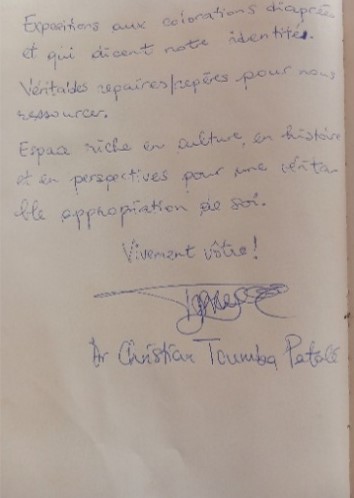 Expositions aux colorations diaprées
et qui disent notre identité.
Véritables repaires/repères pour nous
ressourcer.
Espace riche en culture, en histoire
et en perspectives pour une vérita-
ble appropiation de soi.
Vivement vôtre!
Dr Christian Toumba Patalé